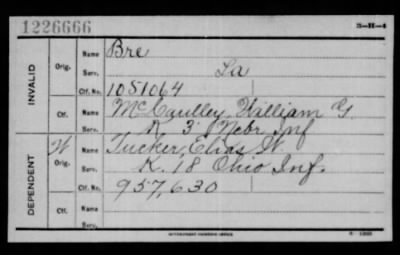 1226666
3-H-4
INVALID
Orig.
Name Bre
Serv. La
Ctf. No. 1051064
Ctf.
Name McCaulley, William G.
Serv. A 3 Nebr Inf
DEPENDENT
W
Orig.
Name Tucker, Elias W.
Serv. K. 18 Ohio Inf.
Ctf. No. 957,630
Ctf.
Name
Serv.